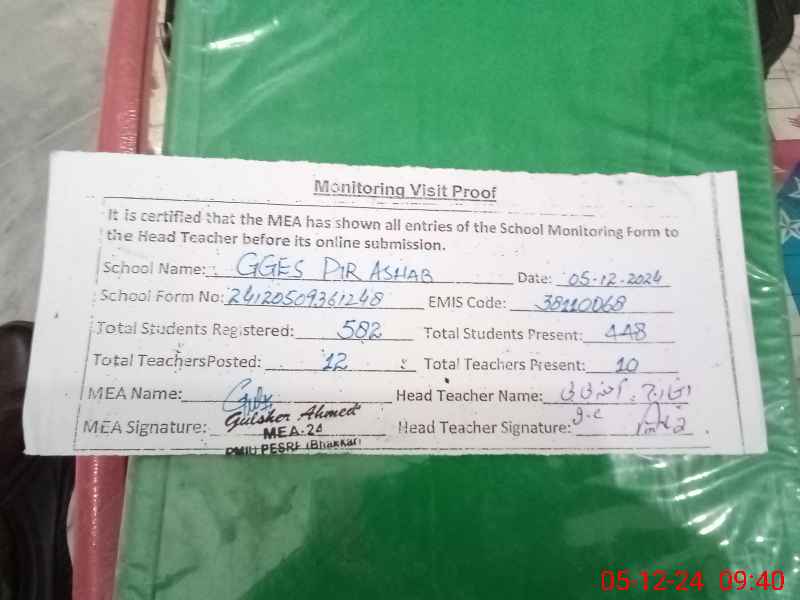 Monitoring Visit Proof
It is certified that the MEA has shown all entries of the School Monitoring Form to
the Head Teacher before its online submission.
School Name: GGES PIR ASHAB Date: 05-12-2024
School Form No: 24120509361248 EMIS Code: 38110068
Total Students Registered: 582 Total Students Present: 448
Total TeachersPosted: 12 Total Teachers Present: 10
MEA Name: Head Teacher Name:
MEA Signature: Gulsher Ahmed Head Teacher Signature:
MEA-24
PMIU PESRP (Bhakkar)
05-12-24 09:40